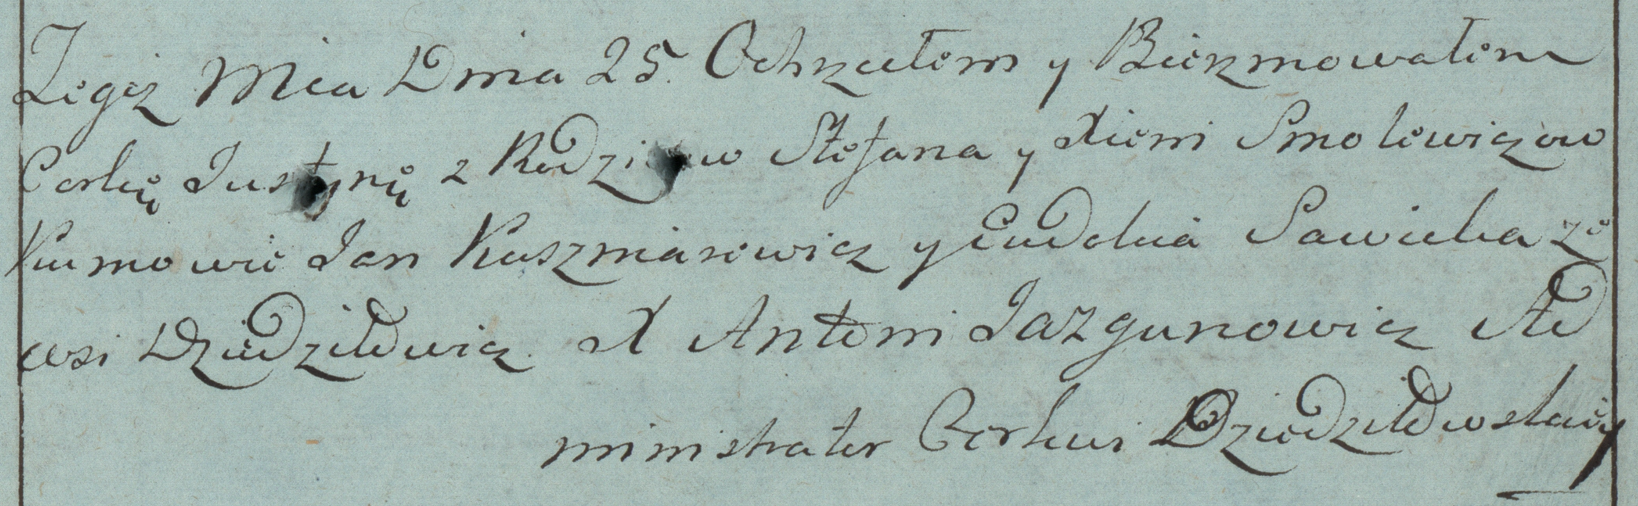 Tegoż Mca Dnia 25. Ochrzciłem y Bierzmowałem
Corkę Justynę z Rodzicow Stefana y Xieni Smolewiczow
Kumowie Jan Kuszniarewicz y Eudokia Sawicka ze
wsi Dziedziłowicz. X Antoni Jazgunowicz Ad
ministrator Cerkwi Dziedziłowskiey